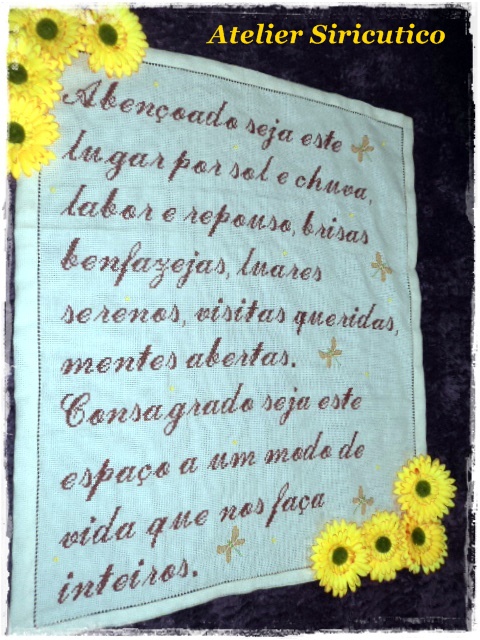 Atelier Siricutico
Abençoado seja este
lugar por sol e chuva,
labor e repouso, brisas
benfazejas, luares
serenos, visitas queridas,
mentes abertas.
Consagrado seja este
espaço a um modo de
vida que nos faça
inteiros.